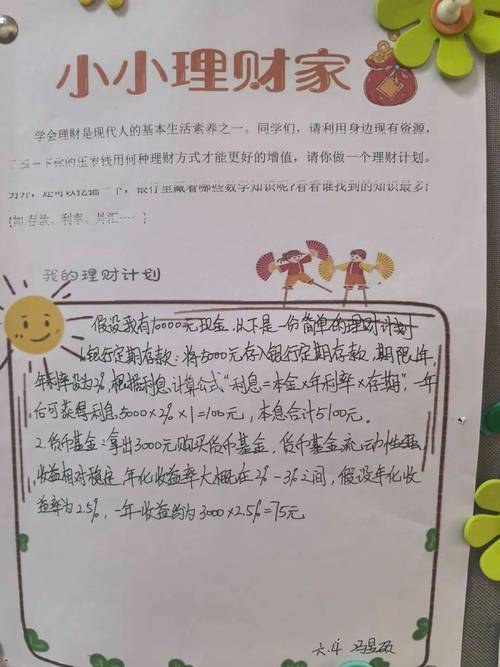 小小理财家
学会理财是现代人的基本生活素养之一。同学们，请利用身边现有资源，
一下你的压岁钱用何种理财方式才能更好的增值，请你做一个理财计划。
另外，还可以挖掘一下，银行里藏着哪些数学知识呢？看看谁找到的知识最多！
（如存款、利率、外汇…）
我的理财计划
假设我有10000元现金，以下是一份简单的理财计划
1.银行定期存款：将5000元存入银行定期存款，期限1年，
年利率设为2%，根据利息计算公式“利息=本金×年利率×存期”，一年
后可获得利息5000×2%×1=100元，本息合计5100元。
2.货币基金：拿出3000元购买货币基金，货币基金流动性强，
收益相对稳定，年化收益率大概在2%-3%之间，假设年化收
益率为2.5%，一年收益约为3000×2.5%=75元
六.4 冯昱硕